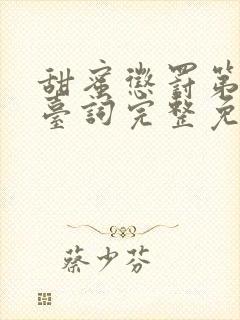 甜蜜懲罰第
臺詞完整免
蔡少芬